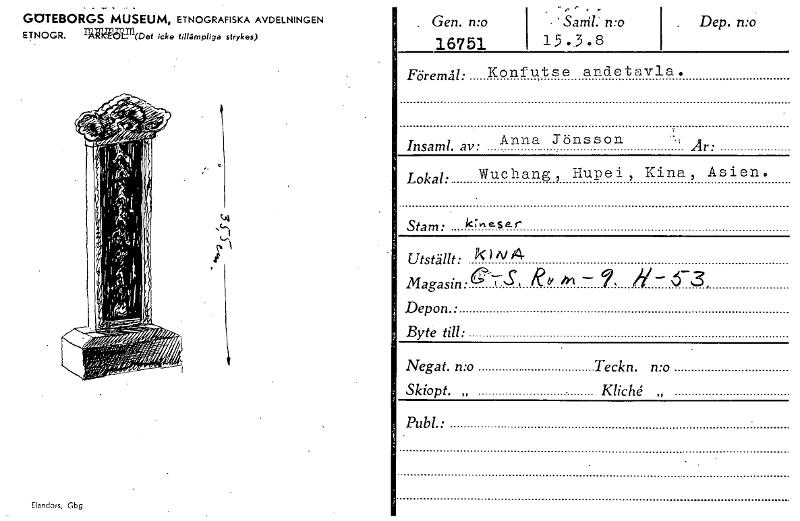 GÖTEBORGS MUSEUM, ETNOGRAFISKA AVDELNINGEN
ETNOGR. ARKEOL. (Det icke tillämpliga strykes)
35,5 cm.
Elanders, Gbg
Gen. n:o Saml. n:o Dep. n:o
16751 15.3.8
Föremål: Konfutse andetavla.
Insaml. av: Anna Jönsson År:
Lokal: Wuchang, Hupei, Kina, Asien.
Stam: kineser
Utställt: KINA
Magasin: G-S. Rum-9. H-53.
Depon.:
Byte till:
Negat. n:o Teckn. n:o
Skiopt. „ Kliché „
Publ.: